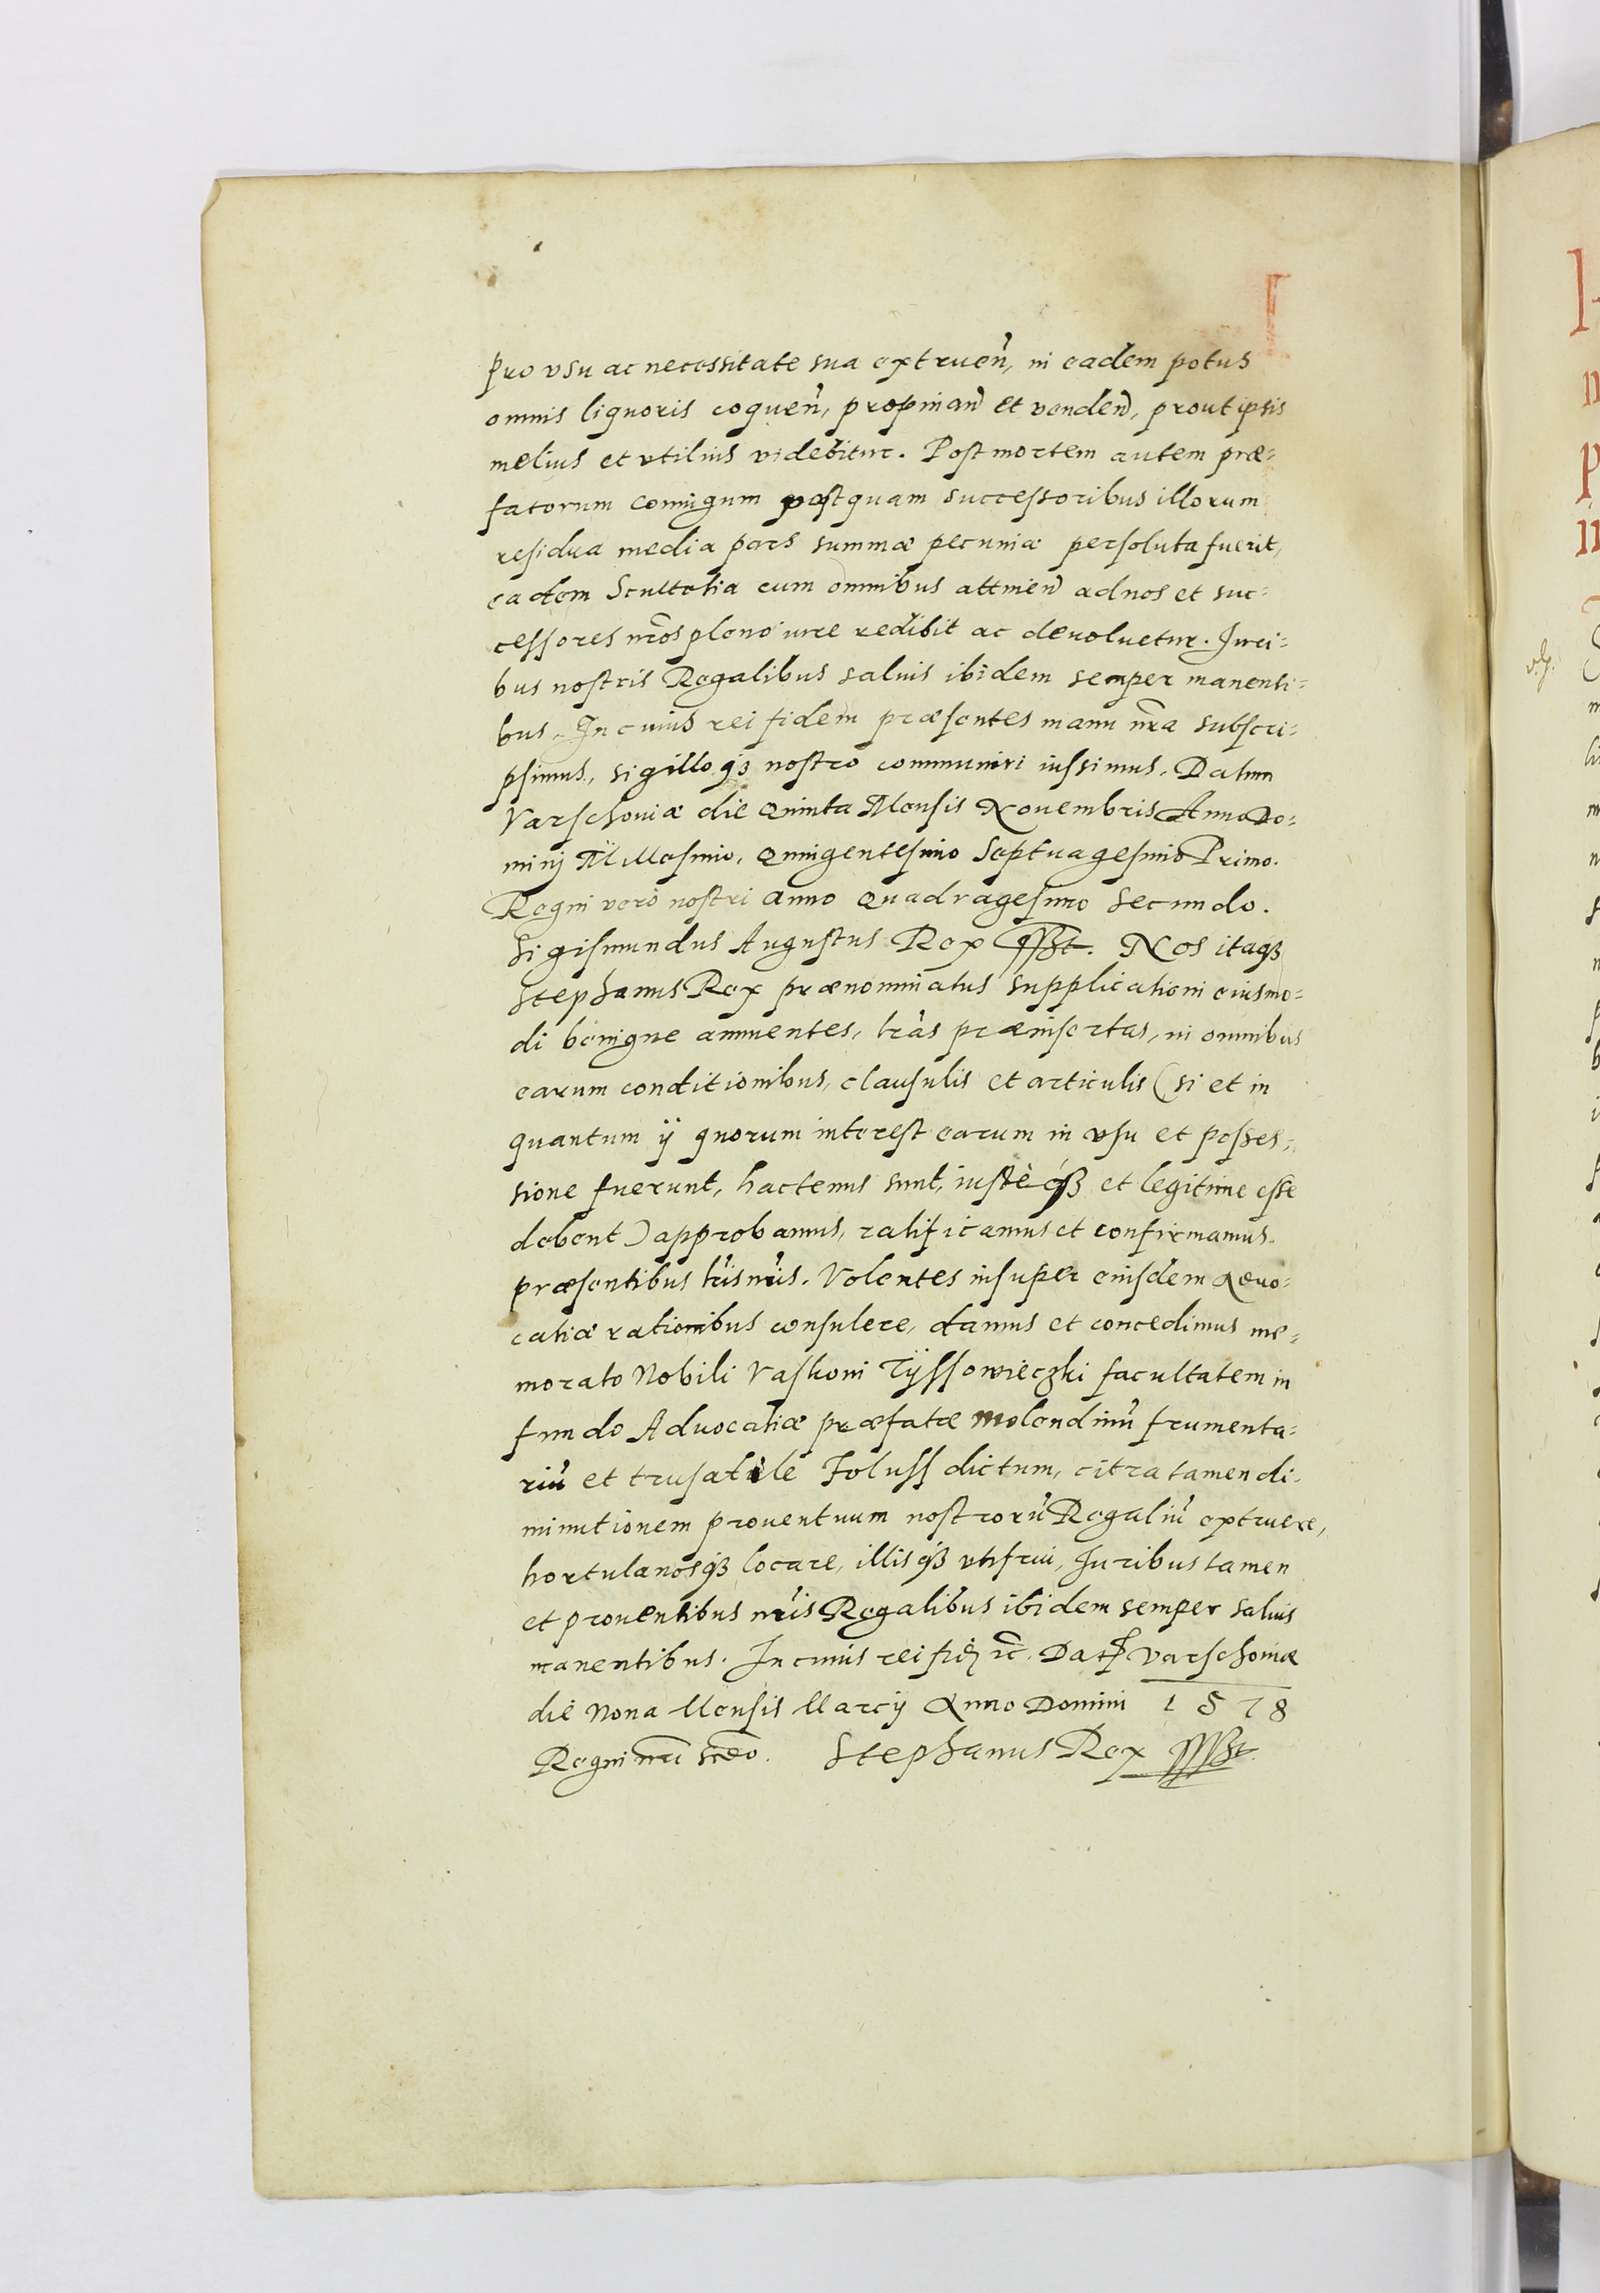 pro vsu ac necessitate sua extruen̄, in eadem potus
omnis liquoris coquen̄, propinan̄d et venden̄d, prout ipsis
melius et vtilius videbitur. Post mortem autem præ=
fatorum coniugum postquam successoribus illorum
residua media pars summæ pecuniæ persoluta fuerit,
eadem Scultetia cum omnibus attinen̄ ad nos et suc=
cessores nr̄os pleno iure redibit ac deuoluetur. Juri=
bus nostris Regalibus saluis ibidem semper manenti=
bus. In cuius rei fidem præsentes manu nr̄a subscri=
psimus, sigilloq3 nostro communiri iussimus. Datum
Varschouiæ die Quinta Mensis Nouembris Anno Do=
minj Millesimo, Quingentesimo Septuagesimo Primo.
Regni verò nostri anno Quadragesimo Secundo.
Sigismundus Augustus Rex sszt. Nos itaq3
Stephanus Rex prænominatus supplicationi eiusmo=
di benigne annuentes, lr̄as præinsertas, in omnibus
earum conditionibus, clausulis et articulis (si et in
quantum ij quorum interest earum in vsu et posses=
sione fuerunt, hactenus sunt, iustèq3 et legitime esse
debent) approbamus, ratificamus et confirmamus
præsentibus lr̄is nr̄is. Volentes insuper eiusdem Aduo=
catiæ rationibus consulere, damus et concedimus me=
morato Nobili Vaskoni Tÿssowieczki facultatem in
fundo Aduocatiæ præfatæ molendinū frumenta=
riū et trusatile Foluss dictum, citra tamen di=
minutionem prouentuum nostrorū Regaliū extruere,
hortulanosq3 locare, illisq3 vtifrui, Juribus tamen
et prouentibus nr̄is Regalibus ibidem semper saluis
manentibus. In cuius rei fid etc. Dat Varschouiæ
die Nona Mensis Marcij Anno Domini 1578
Regni nr̄i scd̄o. Stephanus Rex ssszt